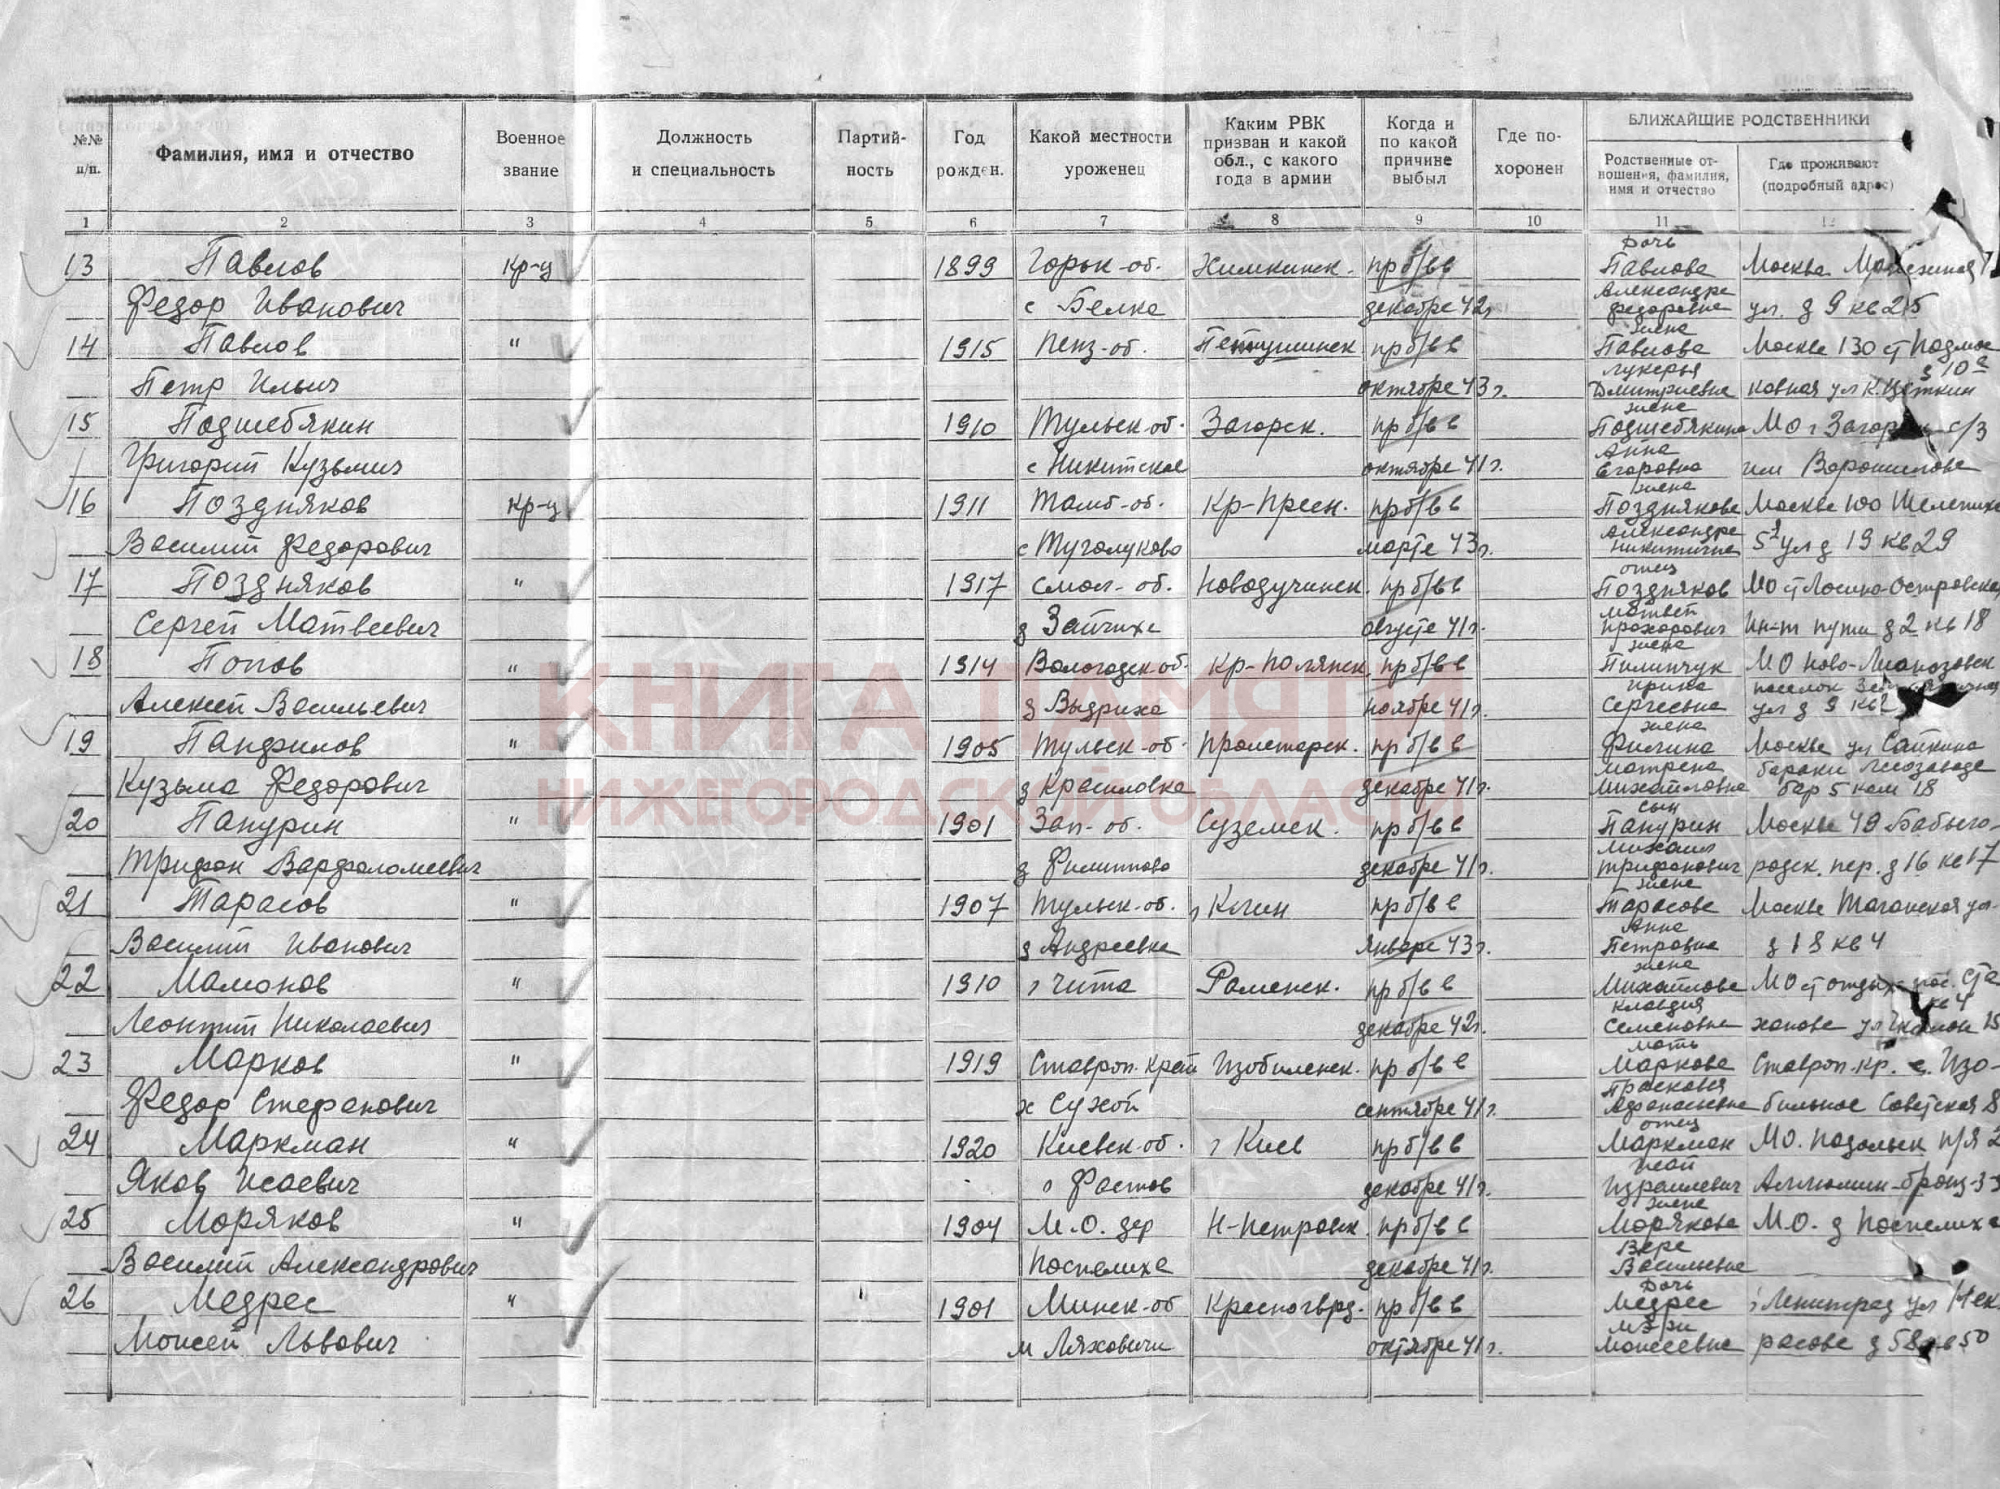 №№ п/п.
Фамилия, имя и отчество
Военное звание
Должность и специальность
Партий-ность
Год рожден.
Какой местности уроженец
Каким РВК призван и какой обл., с какого года в армии
Когда и по какой причине выбыл
Где по-хоронен
БЛИЖАЙШИЕ РОДСТВЕННИКИ
Родственные от-ношения, фамилия, имя и отчество
Где проживают (подробный адрес)
1 2 3 4 5 6 7 8 9 10 11 12
Дочь
13 Павлов кр-ц 1899 Горьк-об. Химкинск. пр б/в в Павлова Москва
Александра
Федор Иванович с Белка декабре 42г Федоровна ул. д 9 кв 25
жена
14 Павлов " 1915 Пенз-об. Петушинск пр б/в в Павлова Москва 130 ст Подмос
Лукерья д 10а
Петр Ильич октябре 43г. Дмитриевна ковная ул К. Цеткин
жена
15 Подшебякин 1910 Тульск-об. Загорск. пр б/в в Подшебякина МО г Загорск с/з
Анна
Григорий Кузьмич с Никитское октябре 41г. Егоровна им Ворошилова
жена
16 Поздняков кр-ц 1911 Тамб-об. Кр-Пресн. пр б/в в Позднякова Москва 100 Шелепиха
Александра
Василий Федорович с Туголуково марте 43г. Никитична 5 ул д 19 кв 29
отец
17 Поздняков " 1917 Смол-об. Новодучинск. пр б/в в Поздняков МО ст Лосино-Островская
Матвей
Сергей Матвеевич д Зайчиха августе 41г. Прохорович Ин-т пути д 2 кв 18
жена
18 Попов " 1914 Вологодск-об. Кр-Полянск. пр б/в в Пилипчук МО Ново-Лианозовск
Ирина поселок
Алексей Васильевич д Выдриха ноябре 41г. Сергеевна ул д 9 кв
жена
19 Панфилов " 1905 Тульск-об. Пролетарск. пр б/в в Филина Москва ул Сайкина
Матрена бараки Лесозавода
Кузьма Федорович д Красиловка декабре 41г. Михайловна бар 5 ком 18
сын
20 Папурин " 1901 Зап-об. Суземск. пр б/в в Папурин Москва 49 Бабьего-
Михаил
Трифон Варфоломеевич д Филиппово декабре 41г. Трифонович родск. пер. д 16 кв 17
жена
21 Тарасов " 1907 Тульск-об. г Кашин пр б/в в Тарасова Москва Таганская ул.
Анна
Василий Иванович д Андреевка январе 43г. Петровна д 18 кв 4
жена
22 Мамонов " 1910 г Чита Раменск. пр б/в в Михайлова МО ст отдых пос. Ста
Клавдия кв 4
Леонтий Николаевич декабре 42г. Семеновна ханова ул
мать
23 Марков " 1919 Ставроп. край Изобиленск. пр б/в в Маркова Ставроп. кр. с. Изо-
Прасковья
Федор Стефанович х Сухой сентябре 41г. Афанасьевна бильное Советская 8
отец
24 Маркман " 1920 Киевск-об. г Киев пр б/в в Маркман МО. Подольск п/я 2
Исай
Яков Исаевич г Фастов декабре 41г. Израилевич
жена
25 Моряков " 1904 М.О. дер Н-Петровск. пр б/в в Морякова М.О. д Поспелиха
Вера
Василий Александрович Поспелиха декабре 41г. Васильевна
Дочь
26 Медрес " 1901 Минск-об Красногврд. пр б/в в Медрес г Ленинград ул Нек
Мэри
Моисей Львович м Ляховичи октябре 41г. Моисеевна расова д 58 кв 50
КНИГА ПАМЯТИ
НИЖЕГОРОДСКОЙ ОБЛАСТИ